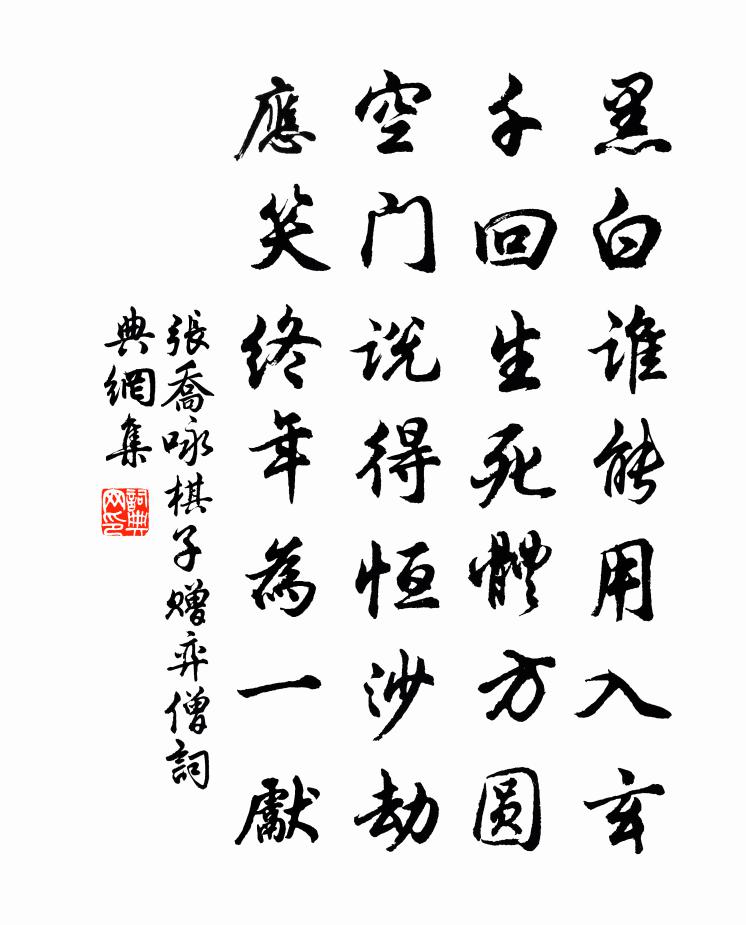 黑白谁能用入玄
千回生死體方圆
空门说得恒沙劫
應笑終年為一獻
張喬咏棋子赠弈僧詞
典網集
詞典
网印